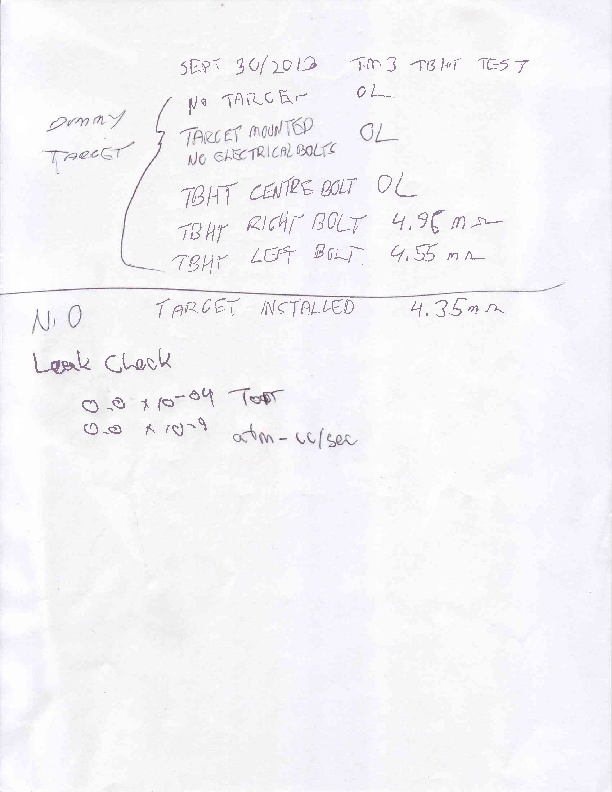 SEPT 30/2013 TM3 TBHT TEST
DUMMY TARGET
NO TARGET OL
TARGET MOUNTED OL
NO ELECTRICAL BOLTS
TBHT CENTRE BOLT OL
TBHT RIGHT BOLT 4.96 mΩ
TBHT LEFT BOLT 4.55 mΩ
NiO TARGET INSTALLED 4.35 mΩ
Leak Check
0.0 x 10-04 Torr
0.0 x 10-9 atm-cc/sec